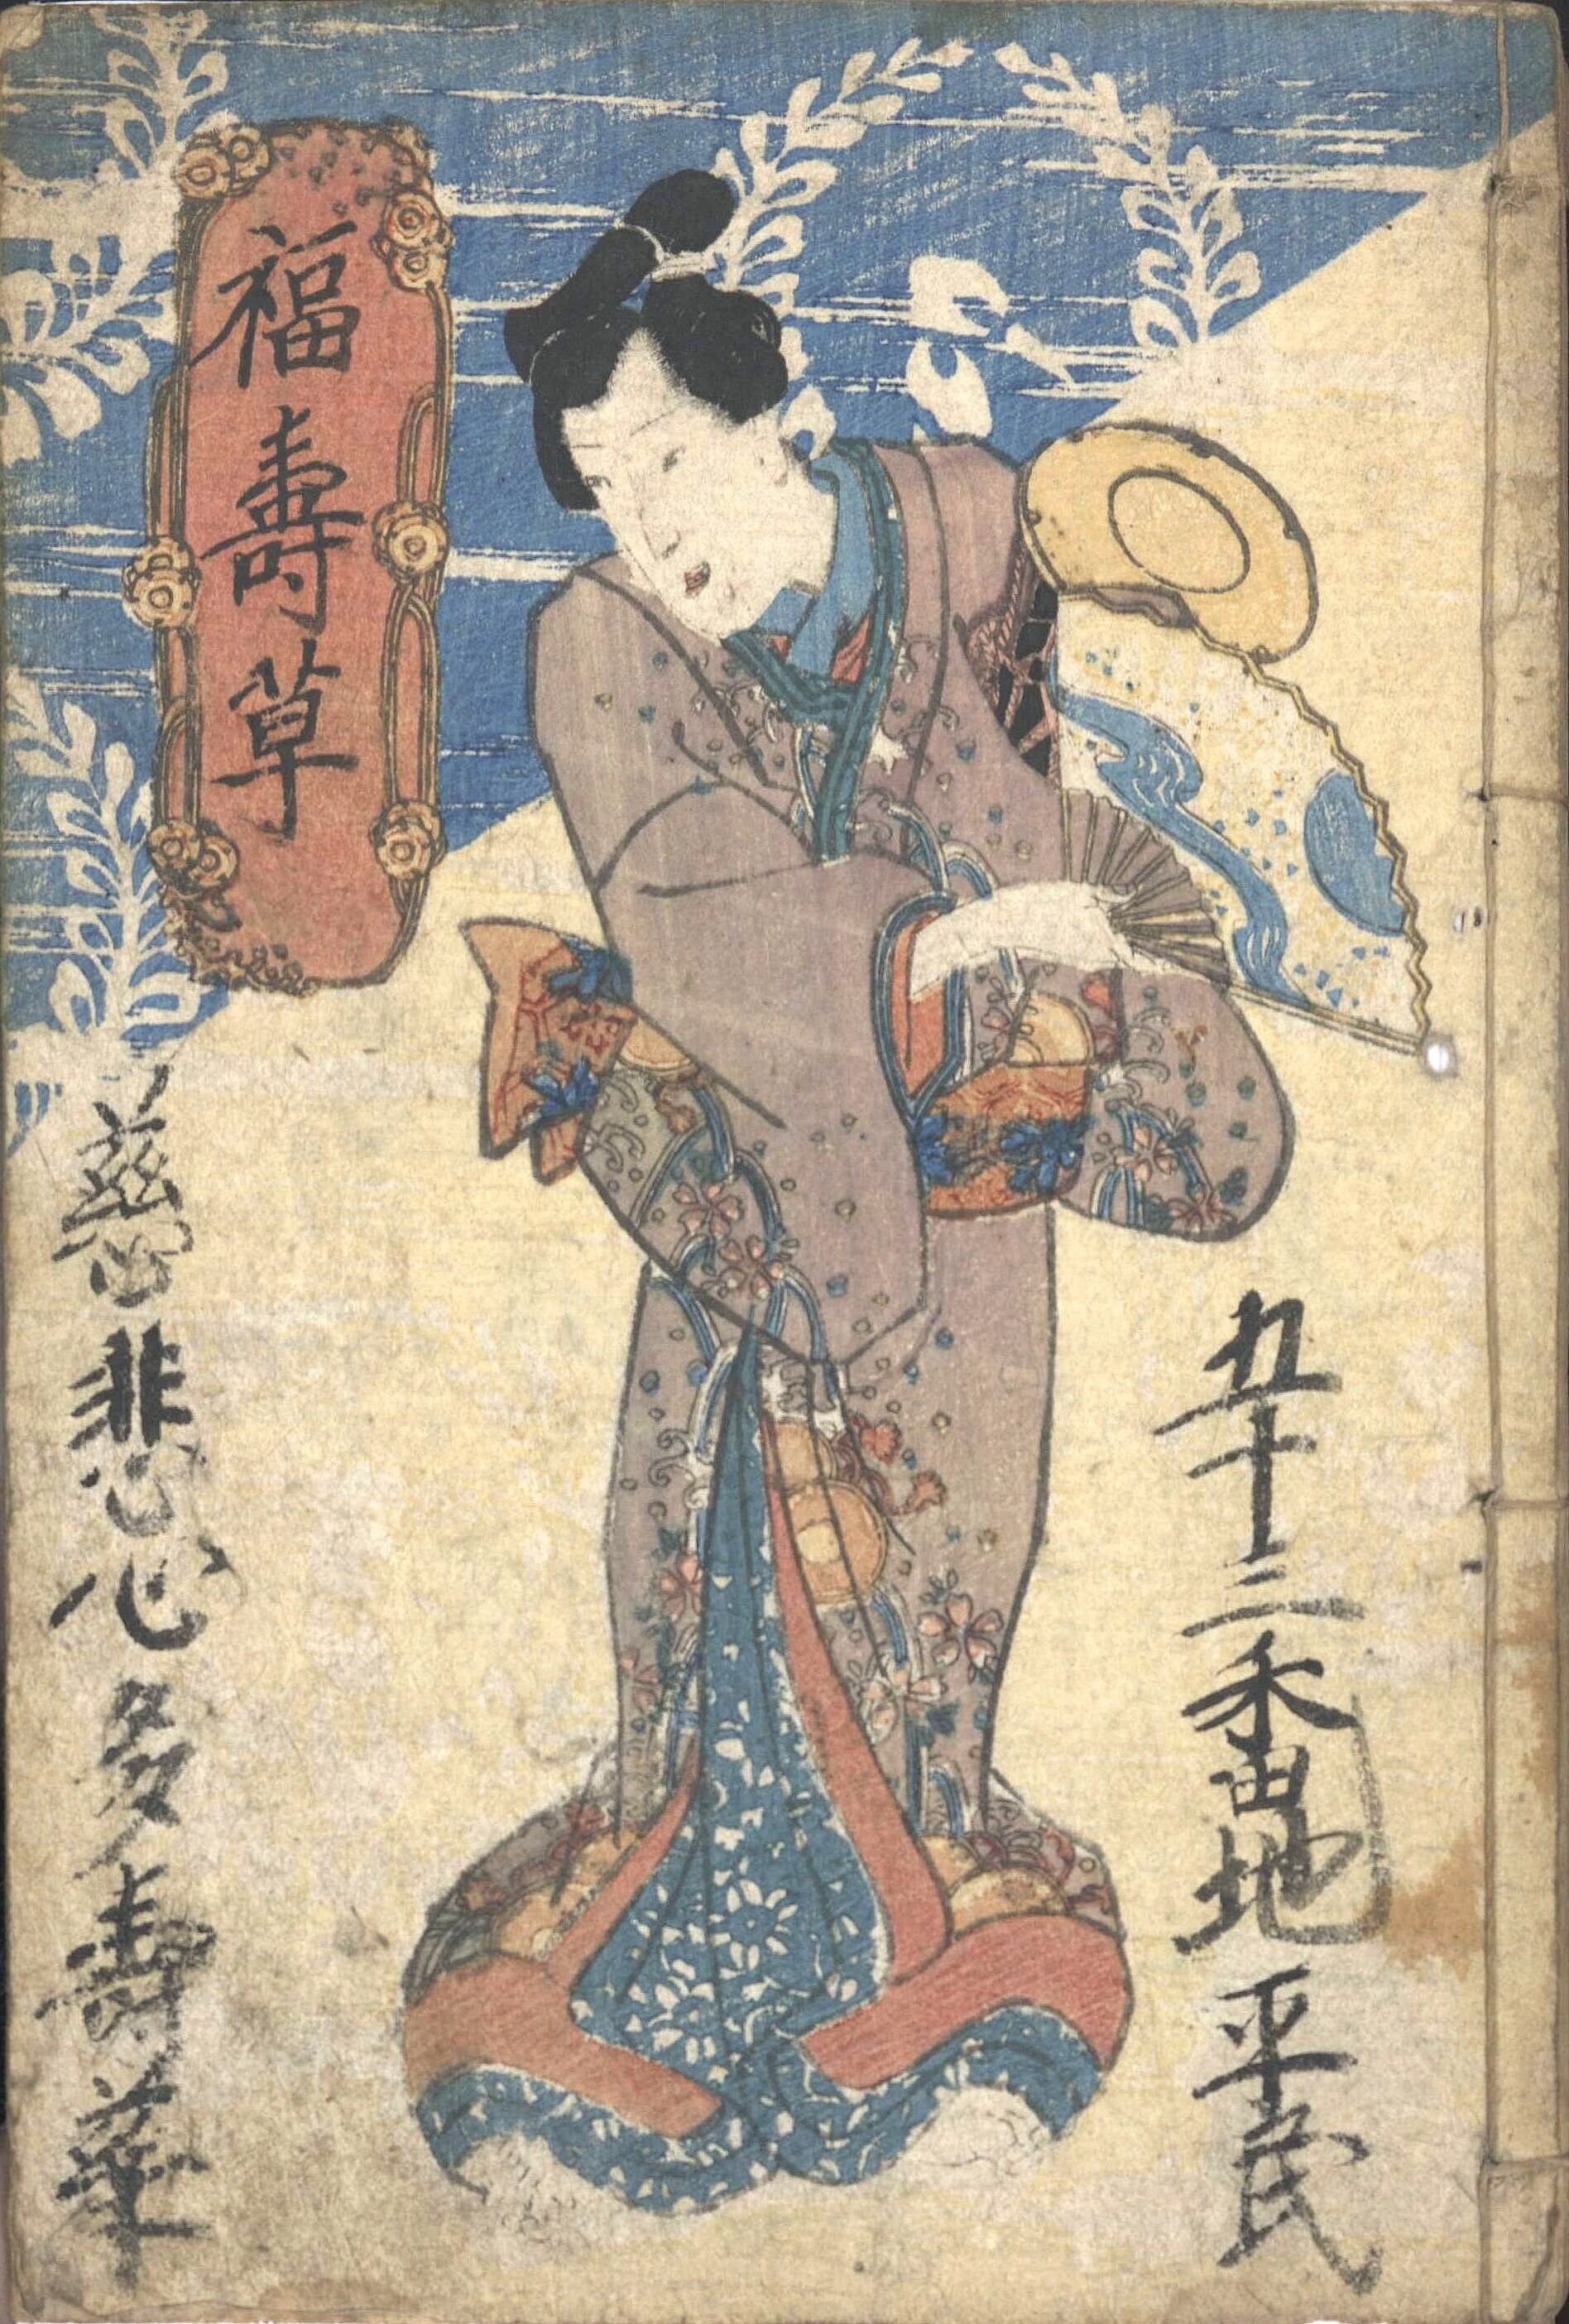 五十三番地平民
福壽草
慈悲心多壽草